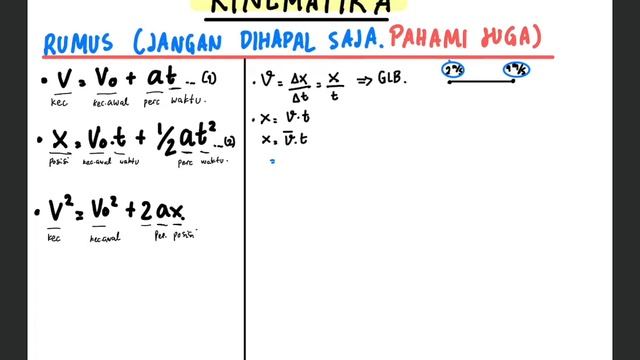 KINEMATIKA
RUMUS (JANGAN DIHAPAL SAJA. PAHAMI JUGA)
• V = V₀ + at ... (1)
kec kec.awal perc waktu.
• X = V₀.t + 1/2 at² ...(2)
posisi kec.awal waktu perc waktu.
• V² = V₀² + 2 ax.
kec kec.awal per. posisi
• V = Δx/Δt = x/t ⇒ GLB.
• x = v.t
x = v̄.t
=